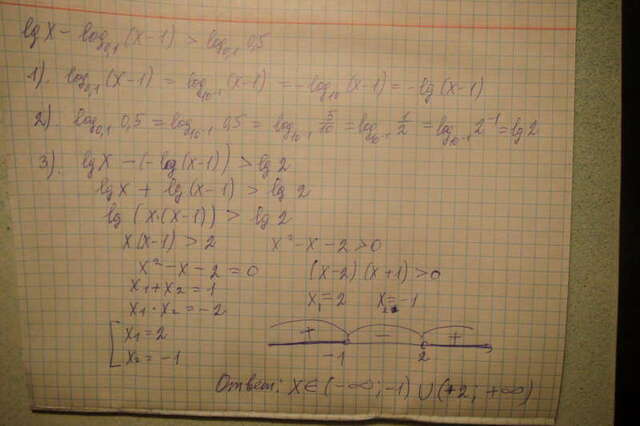 lg x - log₀,₁(x-1) > log₀,₁ 0,5
1). log₀,₁(x-1) = log₁₀₋₁(x-1) = -log₁₀(x-1) = -lg(x-1)
2). log₀,₁ 0,5 = log₁₀₋₁ 0,5 = log₁₀₋₁ 5/10 = log₁₀₋₁ 1/2 = log₁₀₋₁ 2⁻¹ = lg 2
3). lg x - (-log(x-1)) > lg 2
lg x + lg(x-1) > lg 2
lg (x·(x-1)) > lg 2
x(x-1) > 2 x²-x-2>0
x²-x-2 = 0 (x-2)(x+1)>0
x₁+x₂ = 1 x₁=2 x₂=-1
x₁·x₂ = -2
[x₁=2 + - +
x₂=-1 -1 2
Ответ: x∈(-∞; -1)∪(+2; +∞)